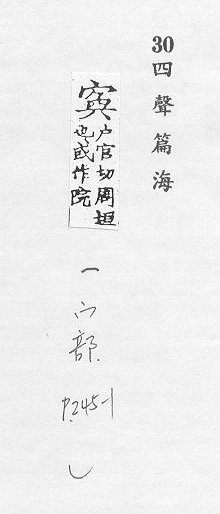 30
四聲篇海
寏
户官切周垣
也或作院
一
宀部
P.245-1